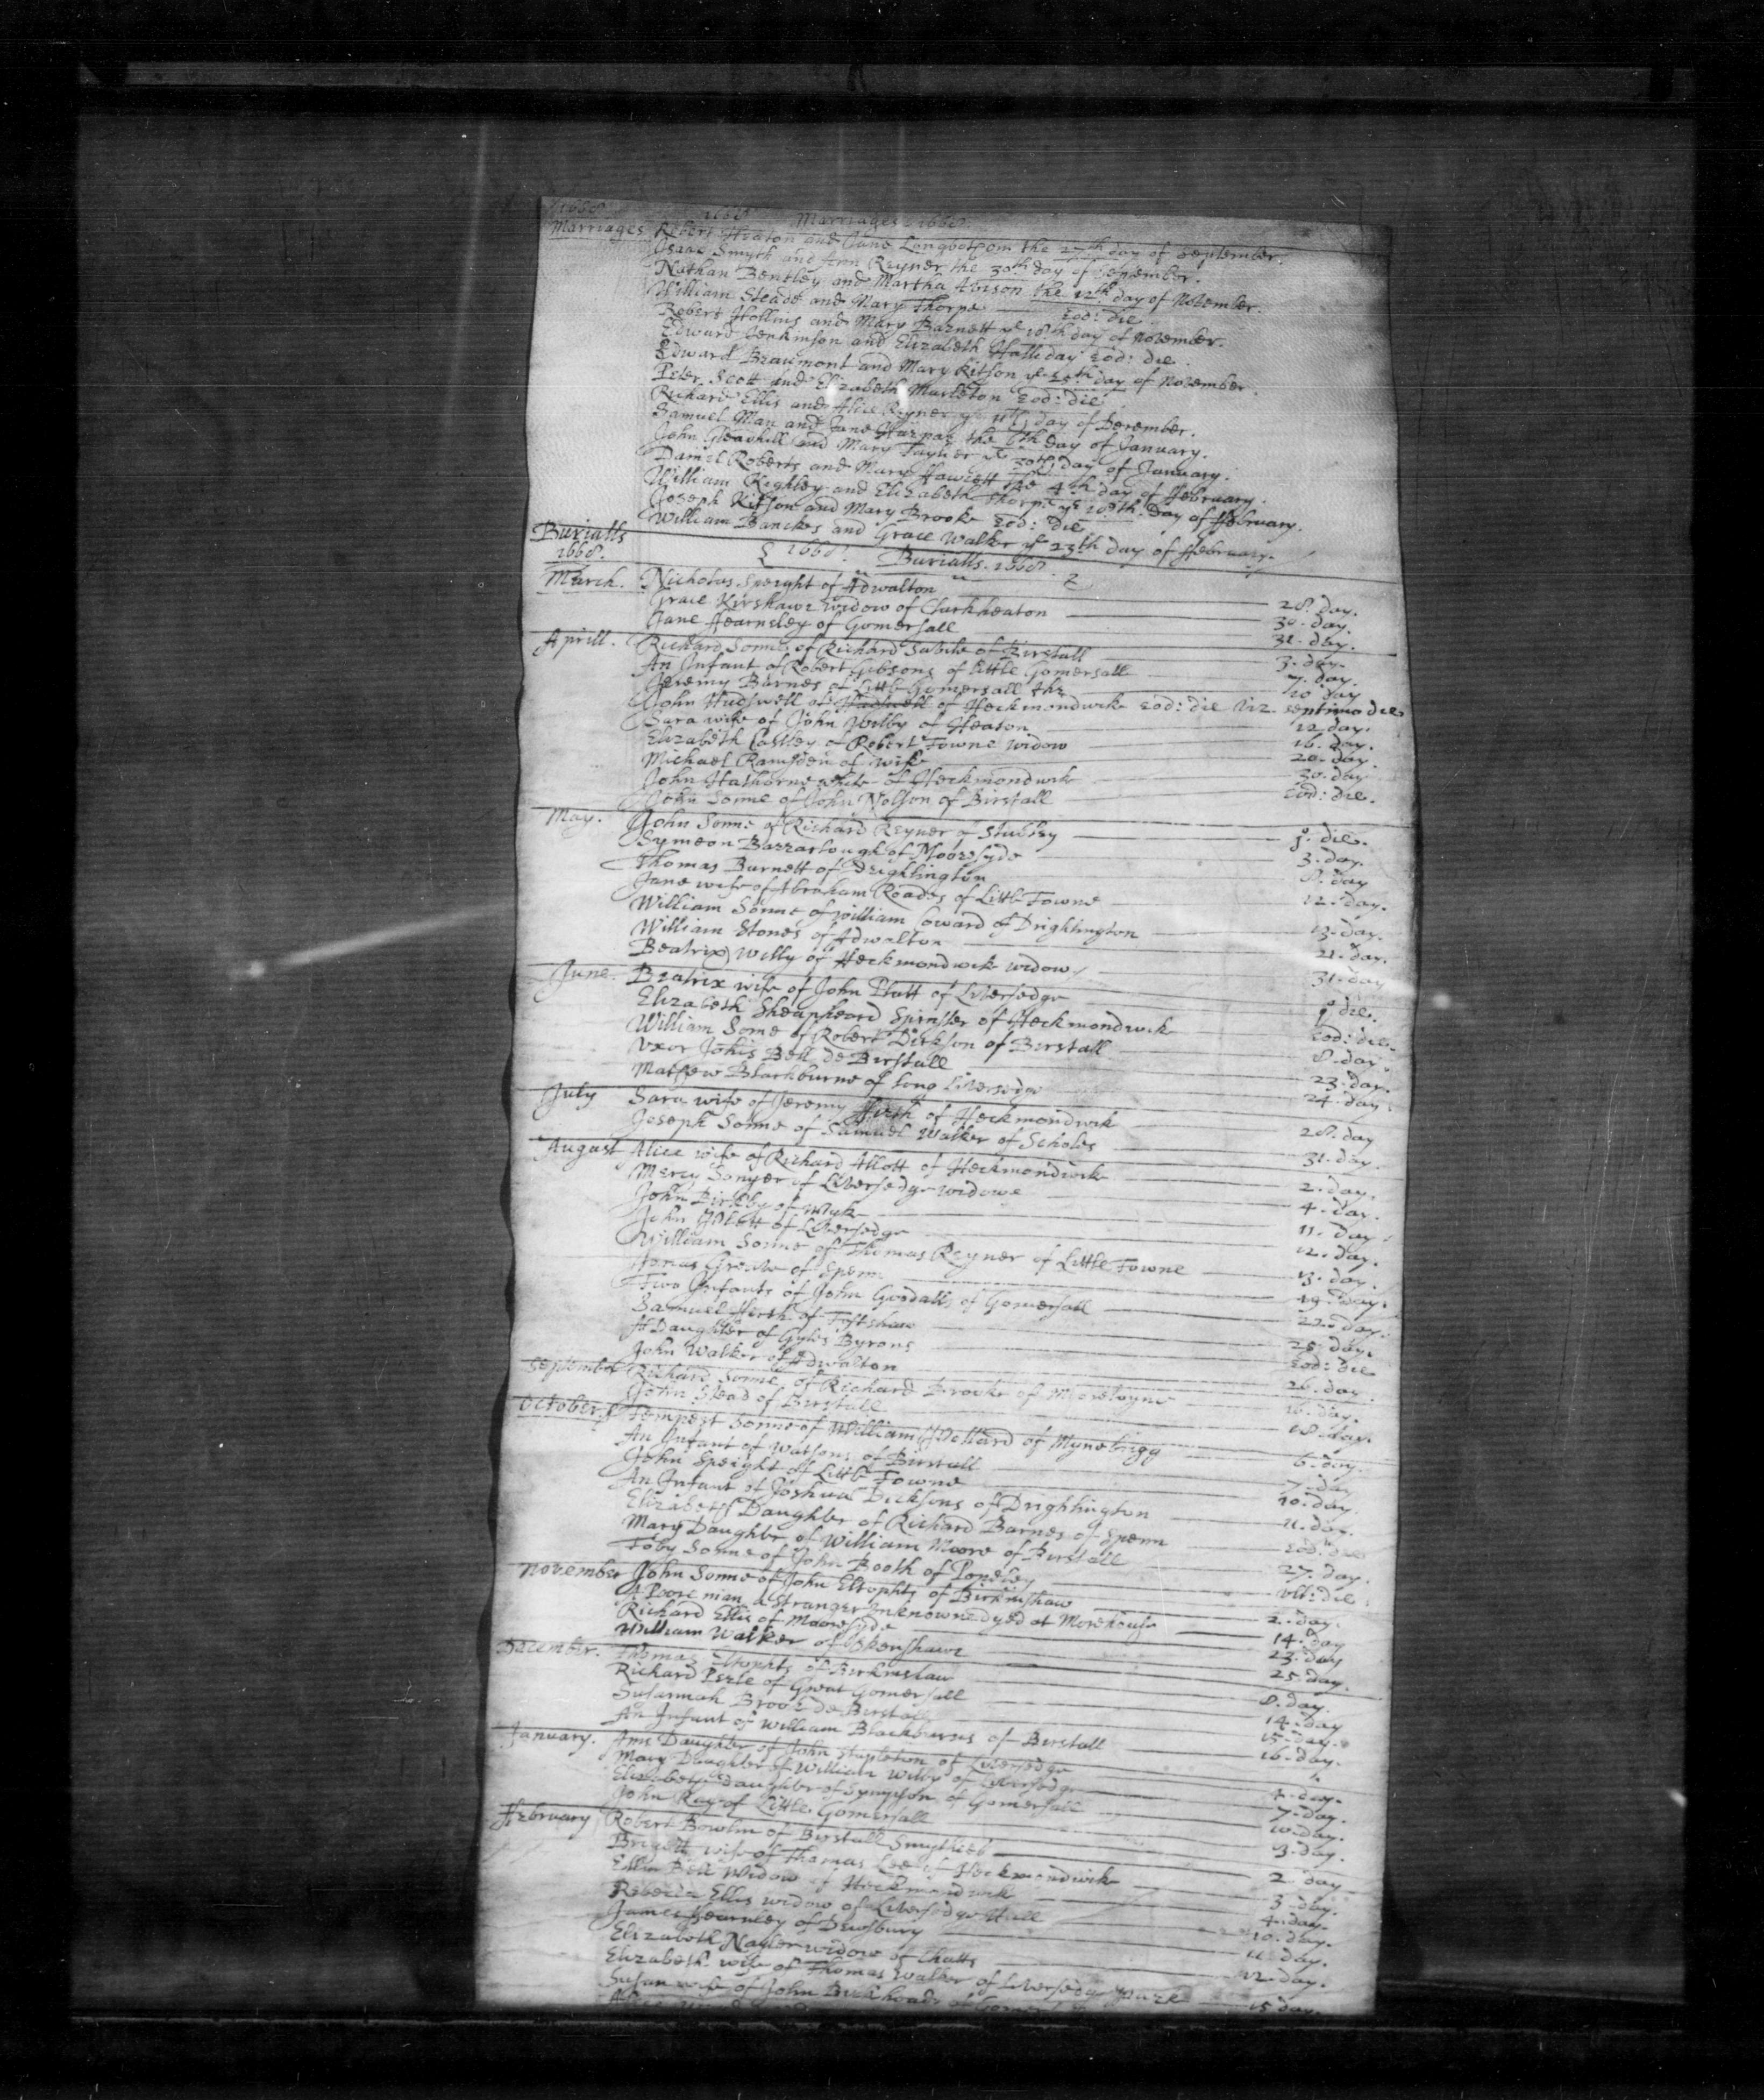 1668 1668 Marriages 1668
Marriages Robert Heaton and Jane Longbottom the 27th day of September.
Isaac Smyth and Ann Reyner the 30th day of September.
Nathan Bentley and Martha the 12th day of November.
William Steade and Mary Thorpe Eod: die
Robert Hollins and Mary Barnett ye 18th day of November.
Edward Jenkinson and Elizabeth Halliday Eod: die.
Edward Beaumont and Mary Kitson ye 25th day of November.
Peter Scott and Elizabeth Eod: die
Richard Ellis and Alice Reyner ye day of December.
Samuel Man and Jane the 6th day of January.
John and Mary Taylier ye 30th day of January.
Daniel Roberts and Mary the 4th day of February.
William Kighley and Elizabeth Thorpe ye 18th Day of February.
Joseph Kitson and Mary Brooke Eod: die
William Banckes and Grace Walker ye 23th day of February.
Burialls
1668. 1668. Burialls. 1668
March. Nicholas Speight of Adwalton 28. day.
Grace Kirshawe widow of Clackheaton 30. day.
Jane Fearnsley of Gomersall 31. day.
Aprill. Richard Sonne of Richard of Birstall 3. day.
An Infant of Robert Gibsons of Little Gomersall 7. day.
Jeremy Barnes of Little Gomersall the 10 day
John Hudswell of of Heckmondwike Eod: die viz. septimo die
Sara wife of John Wilby of Heaton 12 day.
Elizabeth Castley of Robert Towne widow 16. day.
Michael Ramsden of wike 20. day.
John of Heckmondwike 30. day
John Sonne of John Nolson of Birstall Eod: die.
May. John Sonne of Richard Reyner of Stubley j. die.
Symeon Barraclough of Mooresyde 3. day.
Thomas Burnett of Drighlington 8. day
Jane wife of Abraham Roades of Little Towne 12. day.
William Sonne of William Coward of Drighlington 13. day.
William Stones of Adwalton 21. day.
Beatrix Wilby of Heckmondwike widow 31. day
June. Beatrix wife of John Platt of Liversedge j die.
Elizabeth Sheapheard Spinster of Heckmondwike Eod: die.
William Sonne of Robert Dickson of Birstall 8. day.
Vxor Johis Bell de Birstall 23. day.
Mathew Blackburne of long Liversedge 24. day
July Sara wife of Jeremy Firth of Heckmondwike 28. day
Joseph Sonne of Samuel Walker of Scholes 31. day
August Alice wife of Richard Allott of Heckmondwike 2. day.
Mercy Sonyer of Liversedge widowe 4. day.
John Birkby of Wyke 11. day.
John of Liversedge 12. day.
William Sonne of Thomas Reyner of Little Towne 13. day.
Greave of Spenn 19. day.
Two Infants of John Goodalls of Gomersall 22. day.
Samuel Firth of Toftshaw 25. day.
A Daughter of Gyles Byrons Eod: die
John Walker of Adwalton 26. day.
September Richard Sonne of Richard Brooke of 16. day.
John Stead of Birstall 18. day.
October Tempest Sonne of William of 6. day.
An Infant of Watsons of Birstall 7. day
John Speight of Little Towne 10. day.
An Infant of Joshua Dicksons of Drighlington 11. day.
Elizabeth Daughter of Richard Barnes of Spenn Eod: die
Mary Daughter of William Moore of Birstall 27. day.
Toby Sonne of John Booth of vlt: die
November John Sonne of John of Birkinshaw 2. day.
A Poore man a Stranger unknowne dyed at Morehouse 14. day
Richard Ellis of Mooresyde 23. day
William Walker of 25. day.
December. Thomas of 8. day.
Richard Peele of Great Gomersall 14. day
Susannah Brooke de Birstall 15. day.
An Infant of William Blackburns of Birstall 16. day.
January. Ann Daughter of John Stapleton of Liversedge 4. day.
Mary Daughter of William Wilby of Liversedge 7. day.
Elizabeth Daughter of Sympson of Gomersall 10. day.
John Ray of Little Gomersall
February Robert of Birstall Smythies 2 day
Brigett wife of Thomas Lee of Heckmondwike 3. day.
Ellin Bell Widow of Heckmondwike 4. day.
Rebecca Ellis widow of Liversedge Hall 10. day.
James Fearnley of Dewsbury 11 day.
Elizabeth Nayler widow of 12. day.
Elizabeth wife of Thomas Walker of Liversedge Yuxe 15 day.
Susan wife of John of